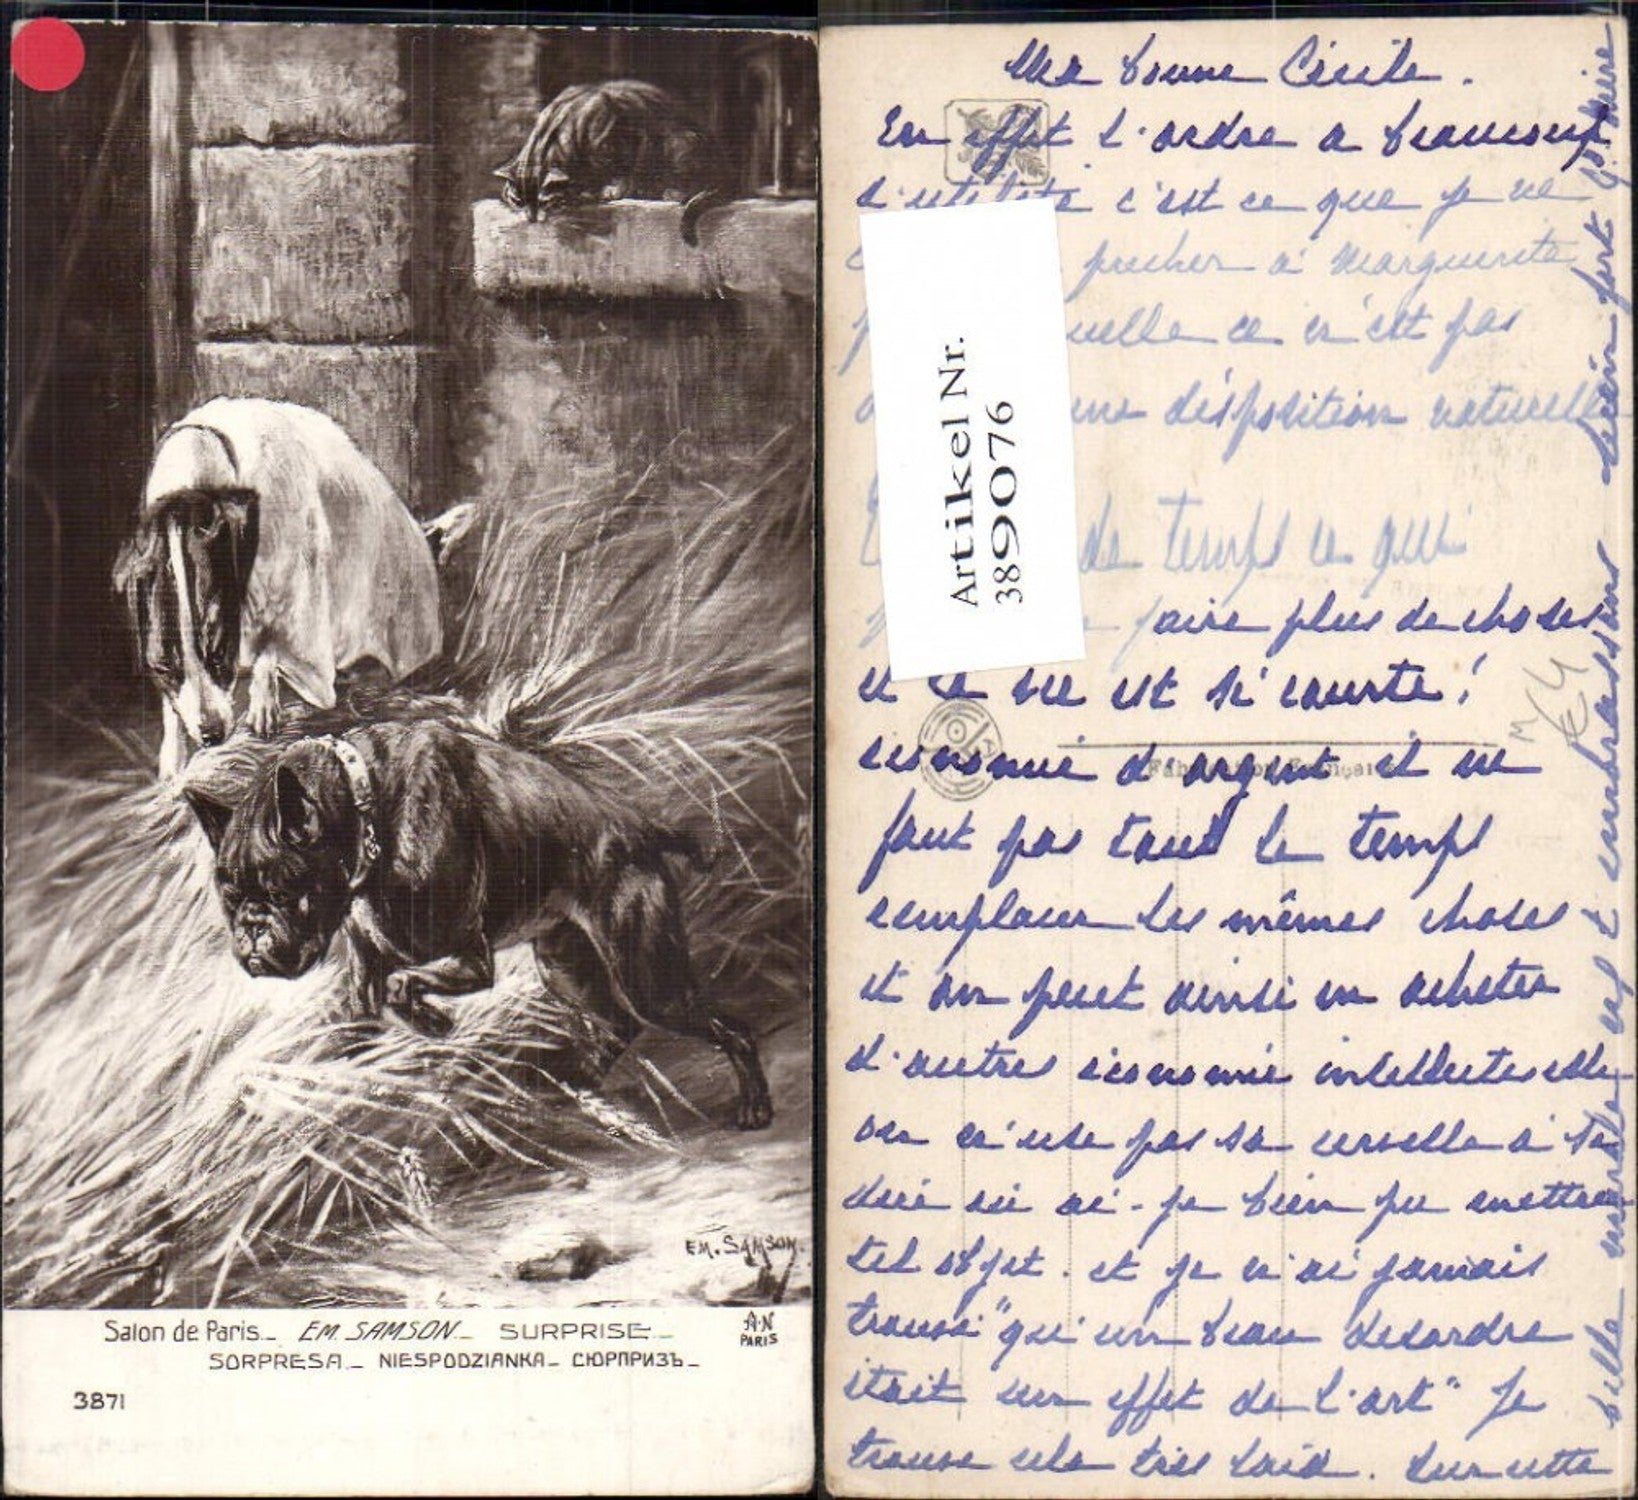 EM. SAMSON.
Salon de Paris_ EM. SAMSON_ SURPRISE_
SORPRESA_ NIESPODZIANKA_ СЮРПРИЗЪ_
A·N
PARIS
3871
Ma bonne Cécile.
En effet l'ordre a beaucoup
d'utilité c'est ce que je ne
prêcher à Marguerite
quelle ce n'est pas
une disposition naturelle
de temps ce qui
faire plus de choses
et la vie est si courte!
économie d'argent il ne
faut pas tout le temps
remplacer les mêmes choses
et on peut ainsi en acheter
d'autres économie intellectuelle
on n'use pas sa cervelle à
où ai-je bien pu mettre
tel objet. et je n'ai jamais
trouvé "qu'un beau désordre
était un effet de l'art" Je
trouve cela très laid. Sur cette
belle morale je vous embrasse bien fort G. Mère
Artikel Nr.
389076
Fabrication Française
M
€4